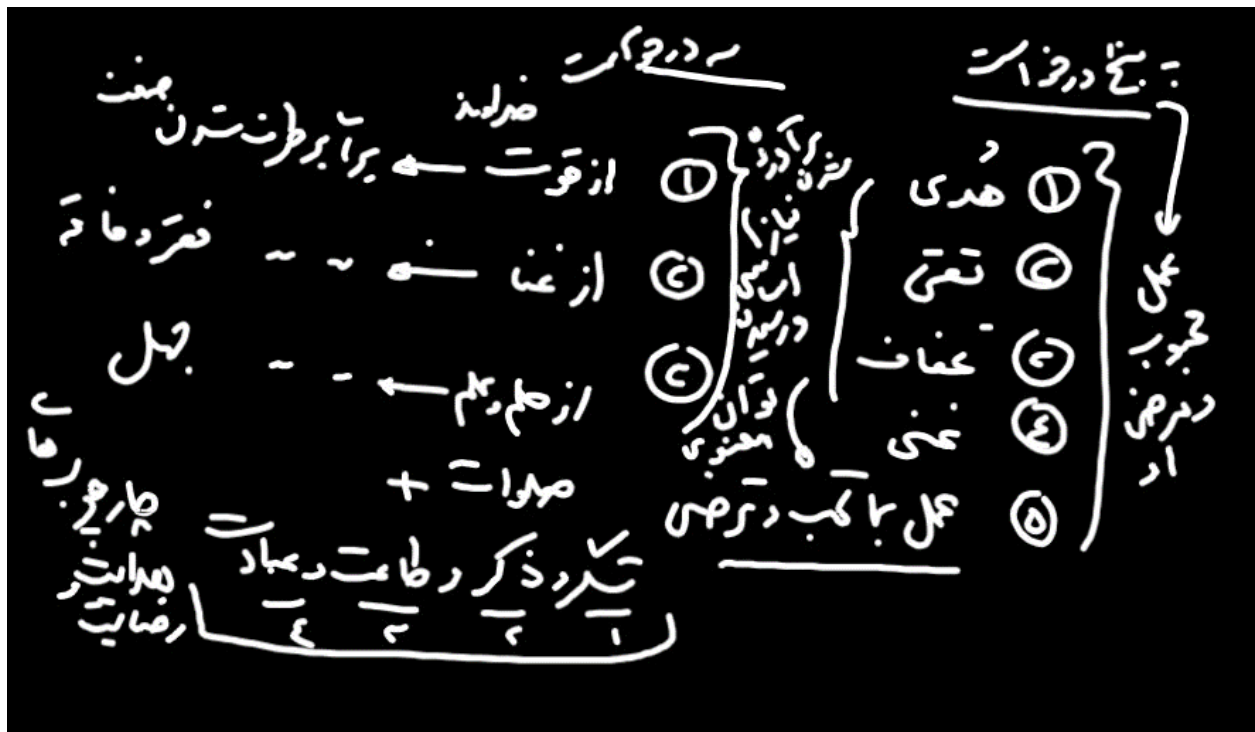 پنج درخواست
۱ هُدی
۲ تقی
۳ عفاف
۴ غنی
۵ عمل بما تحب و ترضی
عمل
محبوب
و مرضی
او
سه درخواست
خداوند
۱ از قوت ← برای برطرف شدن ضعف
۲ از غنا ← ~ ~ فقر و فاقه
۳ از حلم و علم ← - ~ جهل
برآورده
شدن
نیازها
اساسی
و رسیدن
توان
معنوی
صلوات +
شکر و ذکر و طاعت و عبادت
۱ ۲ ۳ ۴
چارچوب های
هدایت و
رضایت